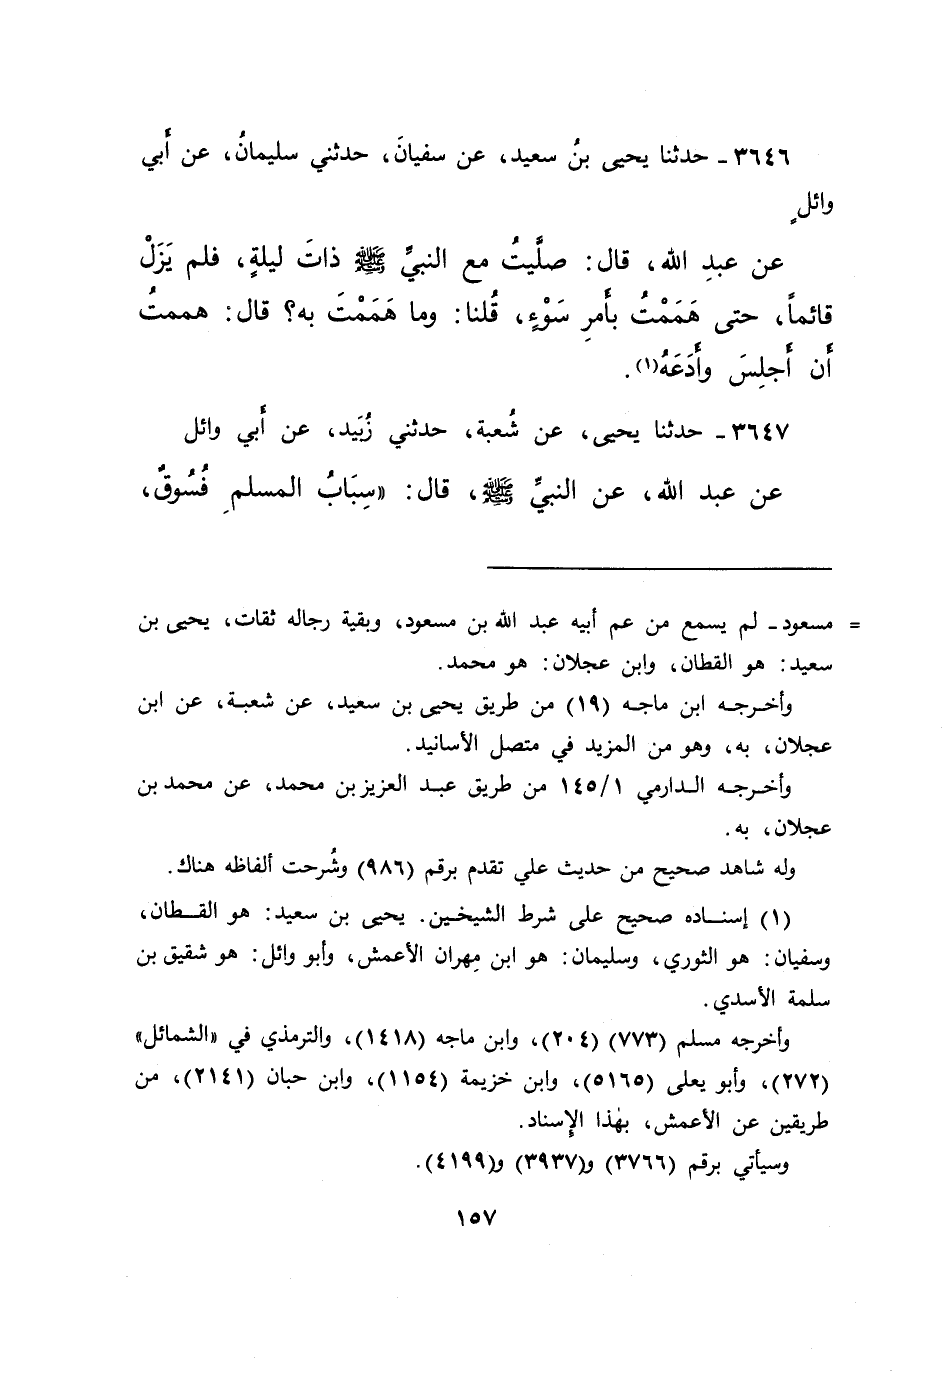 ٣٦٤٦ - حدثنا يحيى بنُ سعيد، عن سفيانَ، حدثني سليمانُ، عن أَبي
وائلٍ
عن عبدِ الله، قال: صلَّيتُ مع النبيِّ ﷺ ذاتَ ليلةٍ، فلم يَزَلْ
قائماً، حتى هَمَمْتُ بأَمرِ سَوْءٍ، قُلنا: وما هَمَمْتَ به؟ قال: هممتُ
أَن أَجلِسَ وأَدَعَهُ(١).
٣٦٤٧ - حدثنا يحيى، عن شُعبة، حدثني زُبَيد، عن أَبي وائل
عن عبد الله، عن النبيِّ ﷺ، قال: «سِبَابُ المسلمِ فُسُوقٌ،
= مسعود - لم يسمع من عم أبيه عبد الله بن مسعود، وبقية رجاله ثقات، يحيى بن
سعيد: هو القطان، وابن عجلان: هو محمد.
وأخرجه ابن ماجه (١٩) من طريق يحيى بن سعيد، عن شعبة، عن ابن
عجلان، به، وهو من المزيد في متصل الأسانيد.
وأخرجه الدارمي ١٤٥/١ من طريق عبد العزيز بن محمد، عن محمد بن
عجلان، به.
وله شاهد صحيح من حديث علي تقدم برقم (٩٨٦) وشُرحت ألفاظه هناك.
(١) إسناده صحيح على شرط الشيخين. يحيى بن سعيد: هو القطان،
وسفيان: هو الثوري، وسليمان: هو ابن مِهران الأعمش، وأبو وائل: هو شقيق بن
سلمة الأسدي.
وأخرجه مسلم (٧٧٣) (٢٠٤)، وابن ماجه (١٤١٨)، والترمذي في «الشمائل»
(٢٧٢)، وأبو يعلى (٥١٦٥)، وابن خزيمة (١١٥٤)، وابن حبان (٢١٤١)، من
طريقين عن الأعمش، بهٰذا الإِسناد.
وسيأتي برقم (٣٧٦٦) و(٣٩٣٧) و(٤١٩٩).
١٥٧